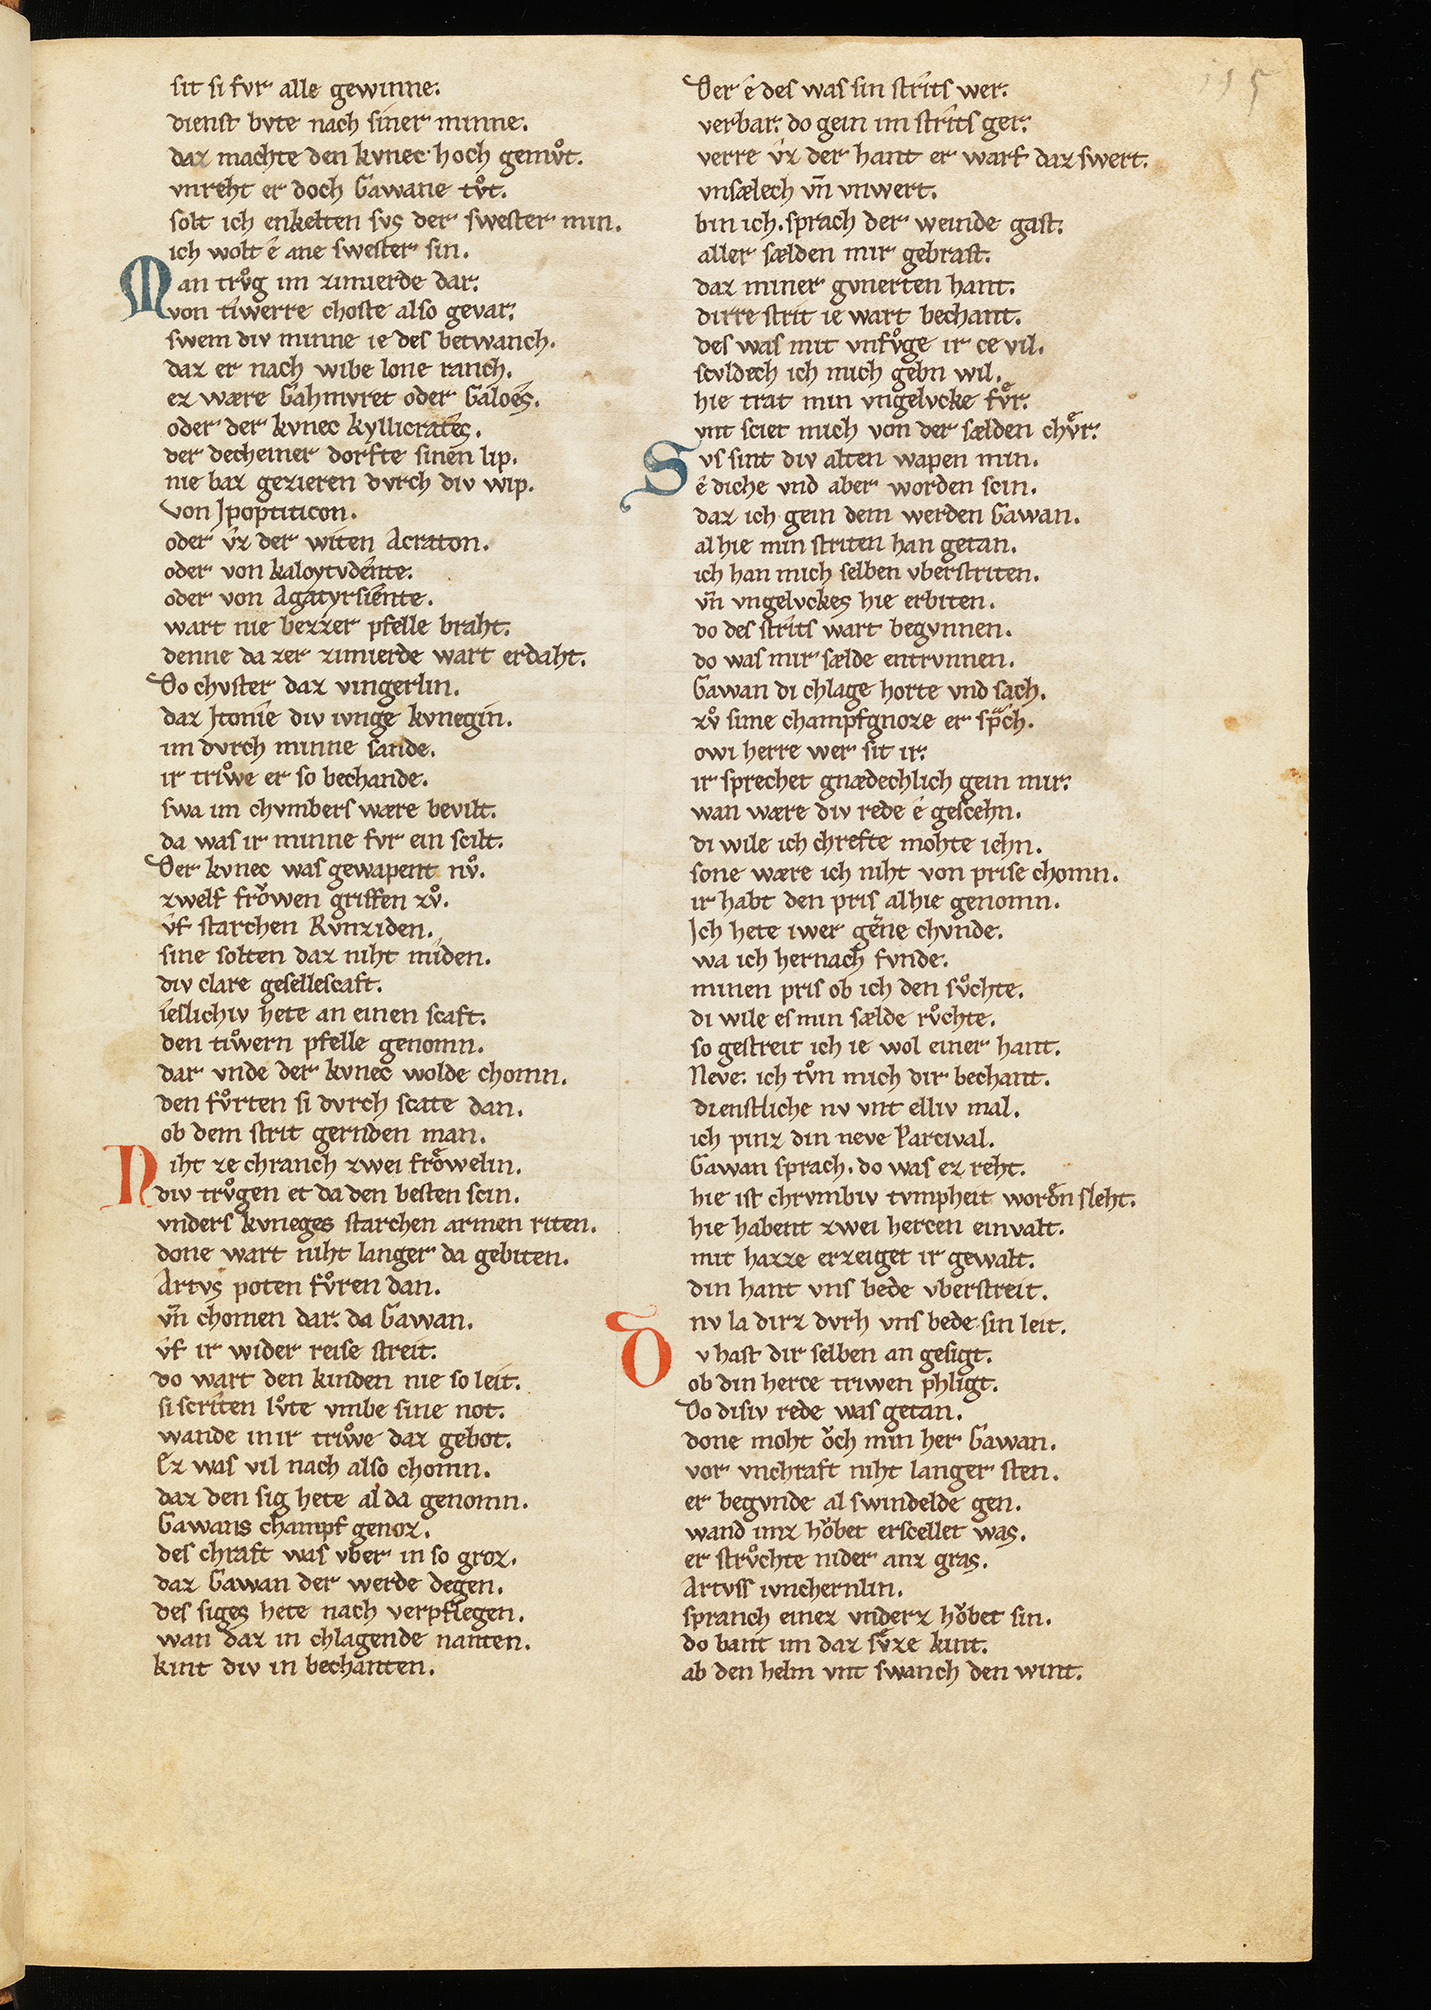 sit si fvr alle gewinne.
dienst bvte nach siner minne.
daz machte den kvnec hoch gemvͦt.
vnreht er doch Gawane tvͦt.
solt ich enkelten svs der swester min.
ich wolt ê ane swester sin.
Man trvͦg im zimierde dar.
von tiwerre choste also gevar.
swem div minne ie des betwanch.
daz er nach wibe lone ranch.
ez wære Gahmvret oder Galoes.
oder der kvnec kyllicrates.
der decheiner dorfte sinen lip.
nie baz gezieren dvrch div wip.
von Jpoptiticon.
oder vz der witen Acraton.
oder von kaloytvdente.
oder von Agatyrsiente.
wart nie bezzer pfelle braht.
denne da zer zimierde wart erdaht.
Do chvster daz vingerlin.
daz Jtonie div ivnge kvnegin.
im dvrch minne sande.
ir triͦwe er so bechande.
swa im chvmbers wære bevilt.
da was ir minne fvr ein scilt.
Der kvnec was gewapent nvͦ.
zwelf froͮwen griffen zvͦ.
vf starchen Rvnziden.
sine solten daz niht miden.
div clare gesellescaft.
ieslichiv hete an einen scaft.
den tiͦwern pfelle genomn.
dar vnde der kvnec wolde chomn.
den fvͦrten si dvrch scate dan.
ob dem strit gernden man.
Niht ze chranch zwei froͮwelin.
div trvͦgen et da den besten scin.
vnders kvneges starchen armen riten.
done wart niht langer da gebiten.
Artvs poten fvͦren dan.
vn̄ chomen dar. da Gawan.
vf ir wider reise streit.
do wart den kinden nie so leit.
si scriten lvͦte vmbe sine not.
wande in ir triͦwe daz gebot.
Ez was vil nach also chomn.
daz den sig hete al da genomn.
Gawans champf genoz.
des chraft was vber in so groz.
daz Gawan der werde degen.
des siges hete nach verpflegen.
wan daz in chlagende nanten.
kint div in bechanten.
Der ê des was sin strits wer.
verbar. do gein im strits ger.
verre vz der hant er warf daz swert.
vnsælech vn̄ vnwert.
bin ich. sprach der weinde gast.
aller sælden mir gebrast.
daz miner gvnerten hant.
dirre strit ie wart bechant.
des was mit vnfvͦge ir ce vil.
scvldech ich mich gebn wil.
hie trat min vngelvcke fvͤr.
vnt sciet mich von der sælden chvͤr.
Svs sint div alten wapen min.
ê diche vnd aber worden scin.
daz ich gein dem werden Gawan.
al hie min striten han getan.
ich han mich selben vberstriten.
vn̄ vngelvckes hie erbiten.
do des strits wart begvnnen.
do was mir sælde entrvnnen.
Gawan di chlage horte vnd sach.
zvͦ sime champfgnoze er spͣch.
owi herre wer sit ir.
ir sprechet gnædechlich gein mir.
wan wære div rede ê gescehn.
di wile ich chrefte mohte iehn.
sone wære ich niht von prise chomn.
ir habt den pris al hie genomn.
Jch hete iwer gerne chvnde.
wa ich hernach fvnde.
minen pris ob ich den svͦchte.
di wile es min sælde rvͦchte.
so gestreit ich ie wol einer hant.
Neve. ich tvͦn mich dir bechant.
dienstliche nv vnt elliv mal.
ich pinz din neve Parcival.
Gawan sprach. do was ez reht.
hie ist chrvmbiv tvmpheit wordn sleht.
hie habent zwei hercen einvalt.
mit hazze erzeiget ir gewalt.
din hant vns bede vberstreit.
nv la dirz dvrh vns bede sin leit.
Dv hast dir selben an gesigt.
ob din herce triwen phligt.
Do disiv rede was getan.
done moht oͮch min her Gawan.
vor vnchraft niht langer sten.
er begvnde al swindelde gen.
wand imz hoͮbet erscellet was.
er strvͦchte nider anz gras.
Artvss ivnchernlin.
spranch einez vnderz hoͮbet sin.
do bant im daz svͤze kint.
ab den helm vnt swanch den wint.